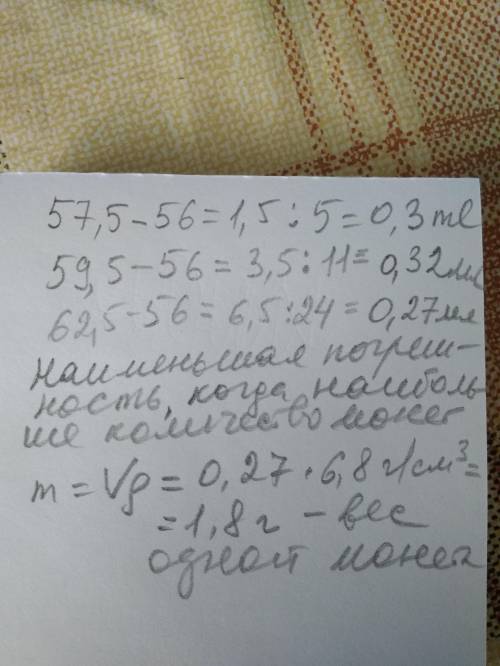 57,5-56=1,5:5=0,3ml
59,5-56=3,5:11=0,32мл
62,5-56=6,5:24=0,27мл
наименьшая погреш-
ность, когда наиболь-
шее количество монет
m=Vρ=0,27·6,8г/см³=
=1,8г - вес
одной монеты